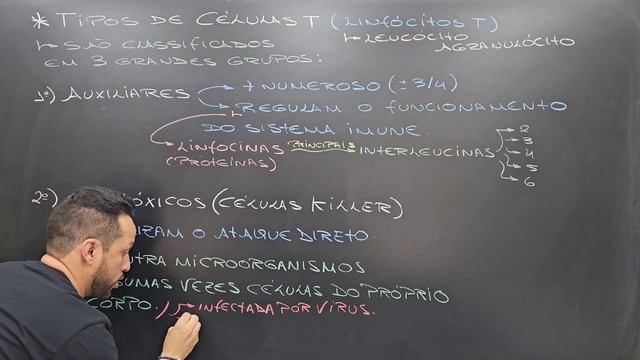 * TIPOS DE CÉLULAS T (LINFÓCITOS T)
↳ LEUCÓCITO AGRANULÓCITO
↳ SÃO CLASSIFICADOS
EM 3 GRANDES GRUPOS:
1º) AUXILIARES → + NUMEROSO (± 3/4)
→ REGULAM O FUNCIONAMENTO
DO SISTEMA IMUNE.
LINFOCINAS PRINCIPAIS INTERLEUCINAS
(PROTEÍNAS)
2
3
4
5
6
2º) ÓXICOS (CÉLULAS KILLER)
IZAM O ATAQUE DIRETO
NTRA MICROORGANISMOS
GUMAS VEZES CÉLULAS DO PRÓPRIO
CORPO. INFECTADA POR VÍRUS.